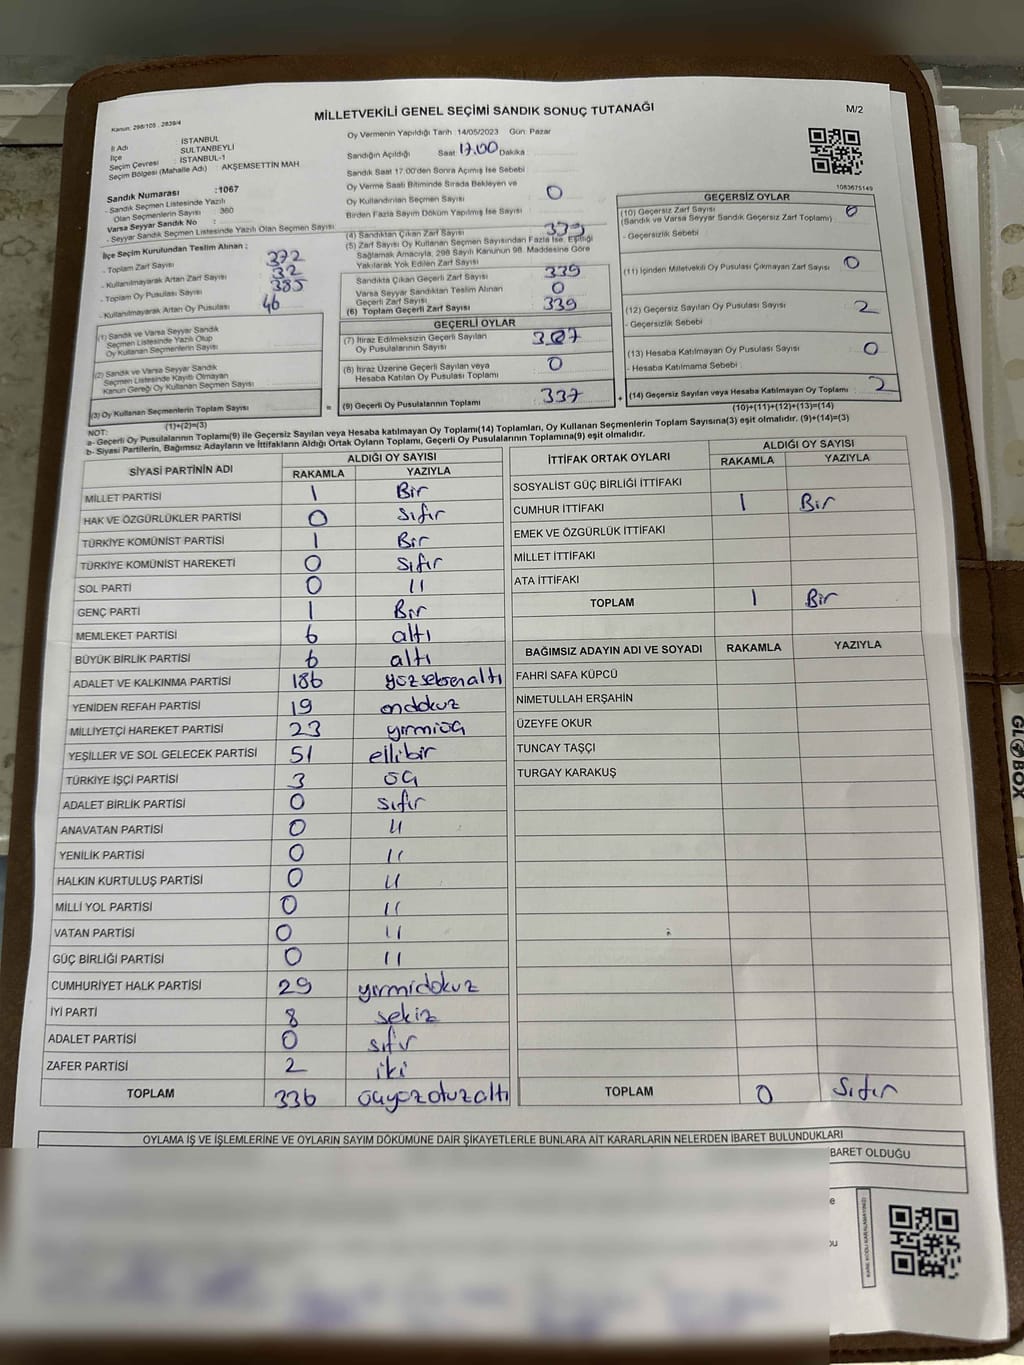 MİLLETVEKİLİ GENEL SEÇİMİ SANDIK SONUÇ TUTANAĞI
M/2
Kanun: 298/105 , 2839/4
İl Adı : İSTANBUL
İlçe : SULTANBEYLİ
Seçim Çevresi : İSTANBUL-1
Seçim Bölgesi (Mahalle Adı) : AKŞEMSETTİN MAH
Sandık Numarası :1067
- Sandık Seçmen Listesinde Yazılı
Olan Seçmenlerin Sayısı : 360
Varsa Seyyar Sandık No :
- Seyyar Sandık Seçmen Listesinde Yazılı Olan Seçmen Sayısı
İlçe Seçim Kurulundan Teslim Alınan ;
- Toplam Zarf Sayısı : 372
- Kullanılmayarak Artan Zarf Sayısı : 32
- Toplam Oy Pusulası Sayısı : 385
- Kullanılmayarak Artan Oy Pusulası : 46
(1) Sandık ve Varsa Seyyar Sandık
Seçmen Listesinde Yazılı Olup
Oy Kullanan Seçmenlerin Sayısı
(2) Sandık ve Varsa Seyyar Sandık
Seçmen Listesinde Kayıtlı Olmayan
Kanun Gereği Oy Kullanan Seçmen Sayısı
(3) Oy Kullanan Seçmenlerin Toplam Sayısı =
(1)+(2)=(3)
Oy Vermenin Yapıldığı Tarih 14/05/2023 Gün: Pazar
Sandığın Açıldığı Saat 17.00 Dakika
Sandık Saat 17.00'den Sonra Açımış İse Sebebi
Oy Verme Saati Bitiminde Sırada Bekleyen ve
Oy Kullandırılan Seçmen Sayısı 0
Birden Fazla Sayım Döküm Yapılmış İse Sayısı
(4) Sandıktan Çıkan Zarf Sayısı 339
(5) Zarf Sayısı Oy Kullanan Seçmen Sayısından Fazla İse, Eşitliği
Sağlamak Amacıyla, 298 Sayılı Kanunun 98. Maddesine Göre
Yakılarak Yok Edilen Zarf Sayısı
Sandıkta Çıkan Geçerli Zarf Sayısı 339
Varsa Seyyar Sandıktan Teslim Alınan
Geçerli Zarf Sayısı 0
(6) Toplam Geçerli Zarf Sayısı 339
GEÇERLİ OYLAR
(7) İtiraz Edilmeksizin Geçerli Sayılan
Oy Pusulalarının Sayısı
(8) İtiraz Üzerine Geçerli Sayılan veya
Hesaba Katılan Oy Pusulası Toplamı 0
(9) Geçerli Oy Pusulalarının Toplamı 337 +
1083675149
GEÇERSİZ OYLAR
(10) Geçersiz Zarf Sayısı 0
(Sandık ve Varsa Seyyar Sandık Geçersiz Zarf Toplamı)
- Geçersizlik Sebebi :
(11) İçinden Milletvekili Oy Pusulası Çıkmayan Zarf Sayısı 0
(12) Geçersiz Sayılan Oy Pusulası Sayısı 2
- Geçersizlik Sebebi :
(13) Hesaba Katılmayan Oy Pusulası Sayısı 0
- Hesaba Katılmama Sebebi :
(14) Geçersiz Sayılan veya Hesaba Katılmayan Oy Toplamı 2
(10)+(11)+(12)+(13)=(14)
NOT:
a- Geçerli Oy Pusulalarının Toplamı(9) ile Geçersiz Sayılan veya Hesaba katılmayan Oy Toplamı(14) Toplamları, Oy Kullanan Seçmenlerin Toplam Sayısına(3) eşit olmalıdır. (9)+(14)=(3)
b- Siyasi Partilerin, Bağımsız Adayların ve İttifakların Aldığı Ortak Oyların Toplamı, Geçerli Oy Pusulalarının Toplamına(9) eşit olmalıdır.
SİYASİ PARTİNİN ADI
ALDIĞI OY SAYISI
RAKAMLA YAZIYLA
MİLLET PARTİSİ 1 Bir
HAK VE ÖZGÜRLÜKLER PARTİSİ 0 Sıfır
TÜRKİYE KOMÜNİST PARTİSİ 1 Bir
TÜRKİYE KOMÜNİST HAREKETİ 0 Sıfır
SOL PARTİ 0 11
GENÇ PARTİ 1 Bir
MEMLEKET PARTİSİ 6 altı
BÜYÜK BİRLİK PARTİSİ 6 altı
ADALET VE KALKINMA PARTİSİ 186 yüzseksenaltı
YENİDEN REFAH PARTİSİ 19 ondokuz
MİLLİYETÇİ HAREKET PARTİSİ 23 yirmiüç
YEŞİLLER VE SOL GELECEK PARTİSİ 51 ellibir
TÜRKİYE İŞÇİ PARTİSİ 3 üç
ADALET BİRLİK PARTİSİ 0 sıfır
ANAVATAN PARTİSİ 0 11
YENİLİK PARTİSİ 0 11
HALKIN KURTULUŞ PARTİSİ 0 11
MİLLİ YOL PARTİSİ 0 11
VATAN PARTİSİ 0 11
GÜÇ BİRLİĞİ PARTİSİ 0 11
CUMHURİYET HALK PARTİSİ 29 yirmidokuz
İYİ PARTİ 8 sekiz
ADALET PARTİSİ 0 sıfır
ZAFER PARTİSİ 2 iki
TOPLAM 336 üçyüzotuzaltı
İTTİFAK ORTAK OYLARI
ALDIĞI OY SAYISI
RAKAMLA YAZIYLA
SOSYALİST GÜÇ BİRLİĞİ İTTİFAKI
CUMHUR İTTİFAKI 1 Bir
EMEK VE ÖZGÜRLÜK İTTİFAKI
MİLLET İTTİFAKI
ATA İTTİFAKI
TOPLAM 1 Bir
BAĞIMSIZ ADAYIN ADI VE SOYADI RAKAMLA YAZIYLA
FAHRİ SAFA KÜPCÜ
NİMETULLAH ERŞAHİN
ÜZEYFE OKUR
TUNCAY TAŞÇI
TURGAY KARAKUŞ
TOPLAM 0 Sıfır
OYLAMA İŞ VE İŞLEMLERİNE VE OYLARIN SAYIM DÖKÜMÜNE DAİR ŞİKAYETLERLE BUNLARA AİT KARARLARIN NELERDEN İBARET BULUNDUKLARI
BARET OLDUĞU
GLOBOX